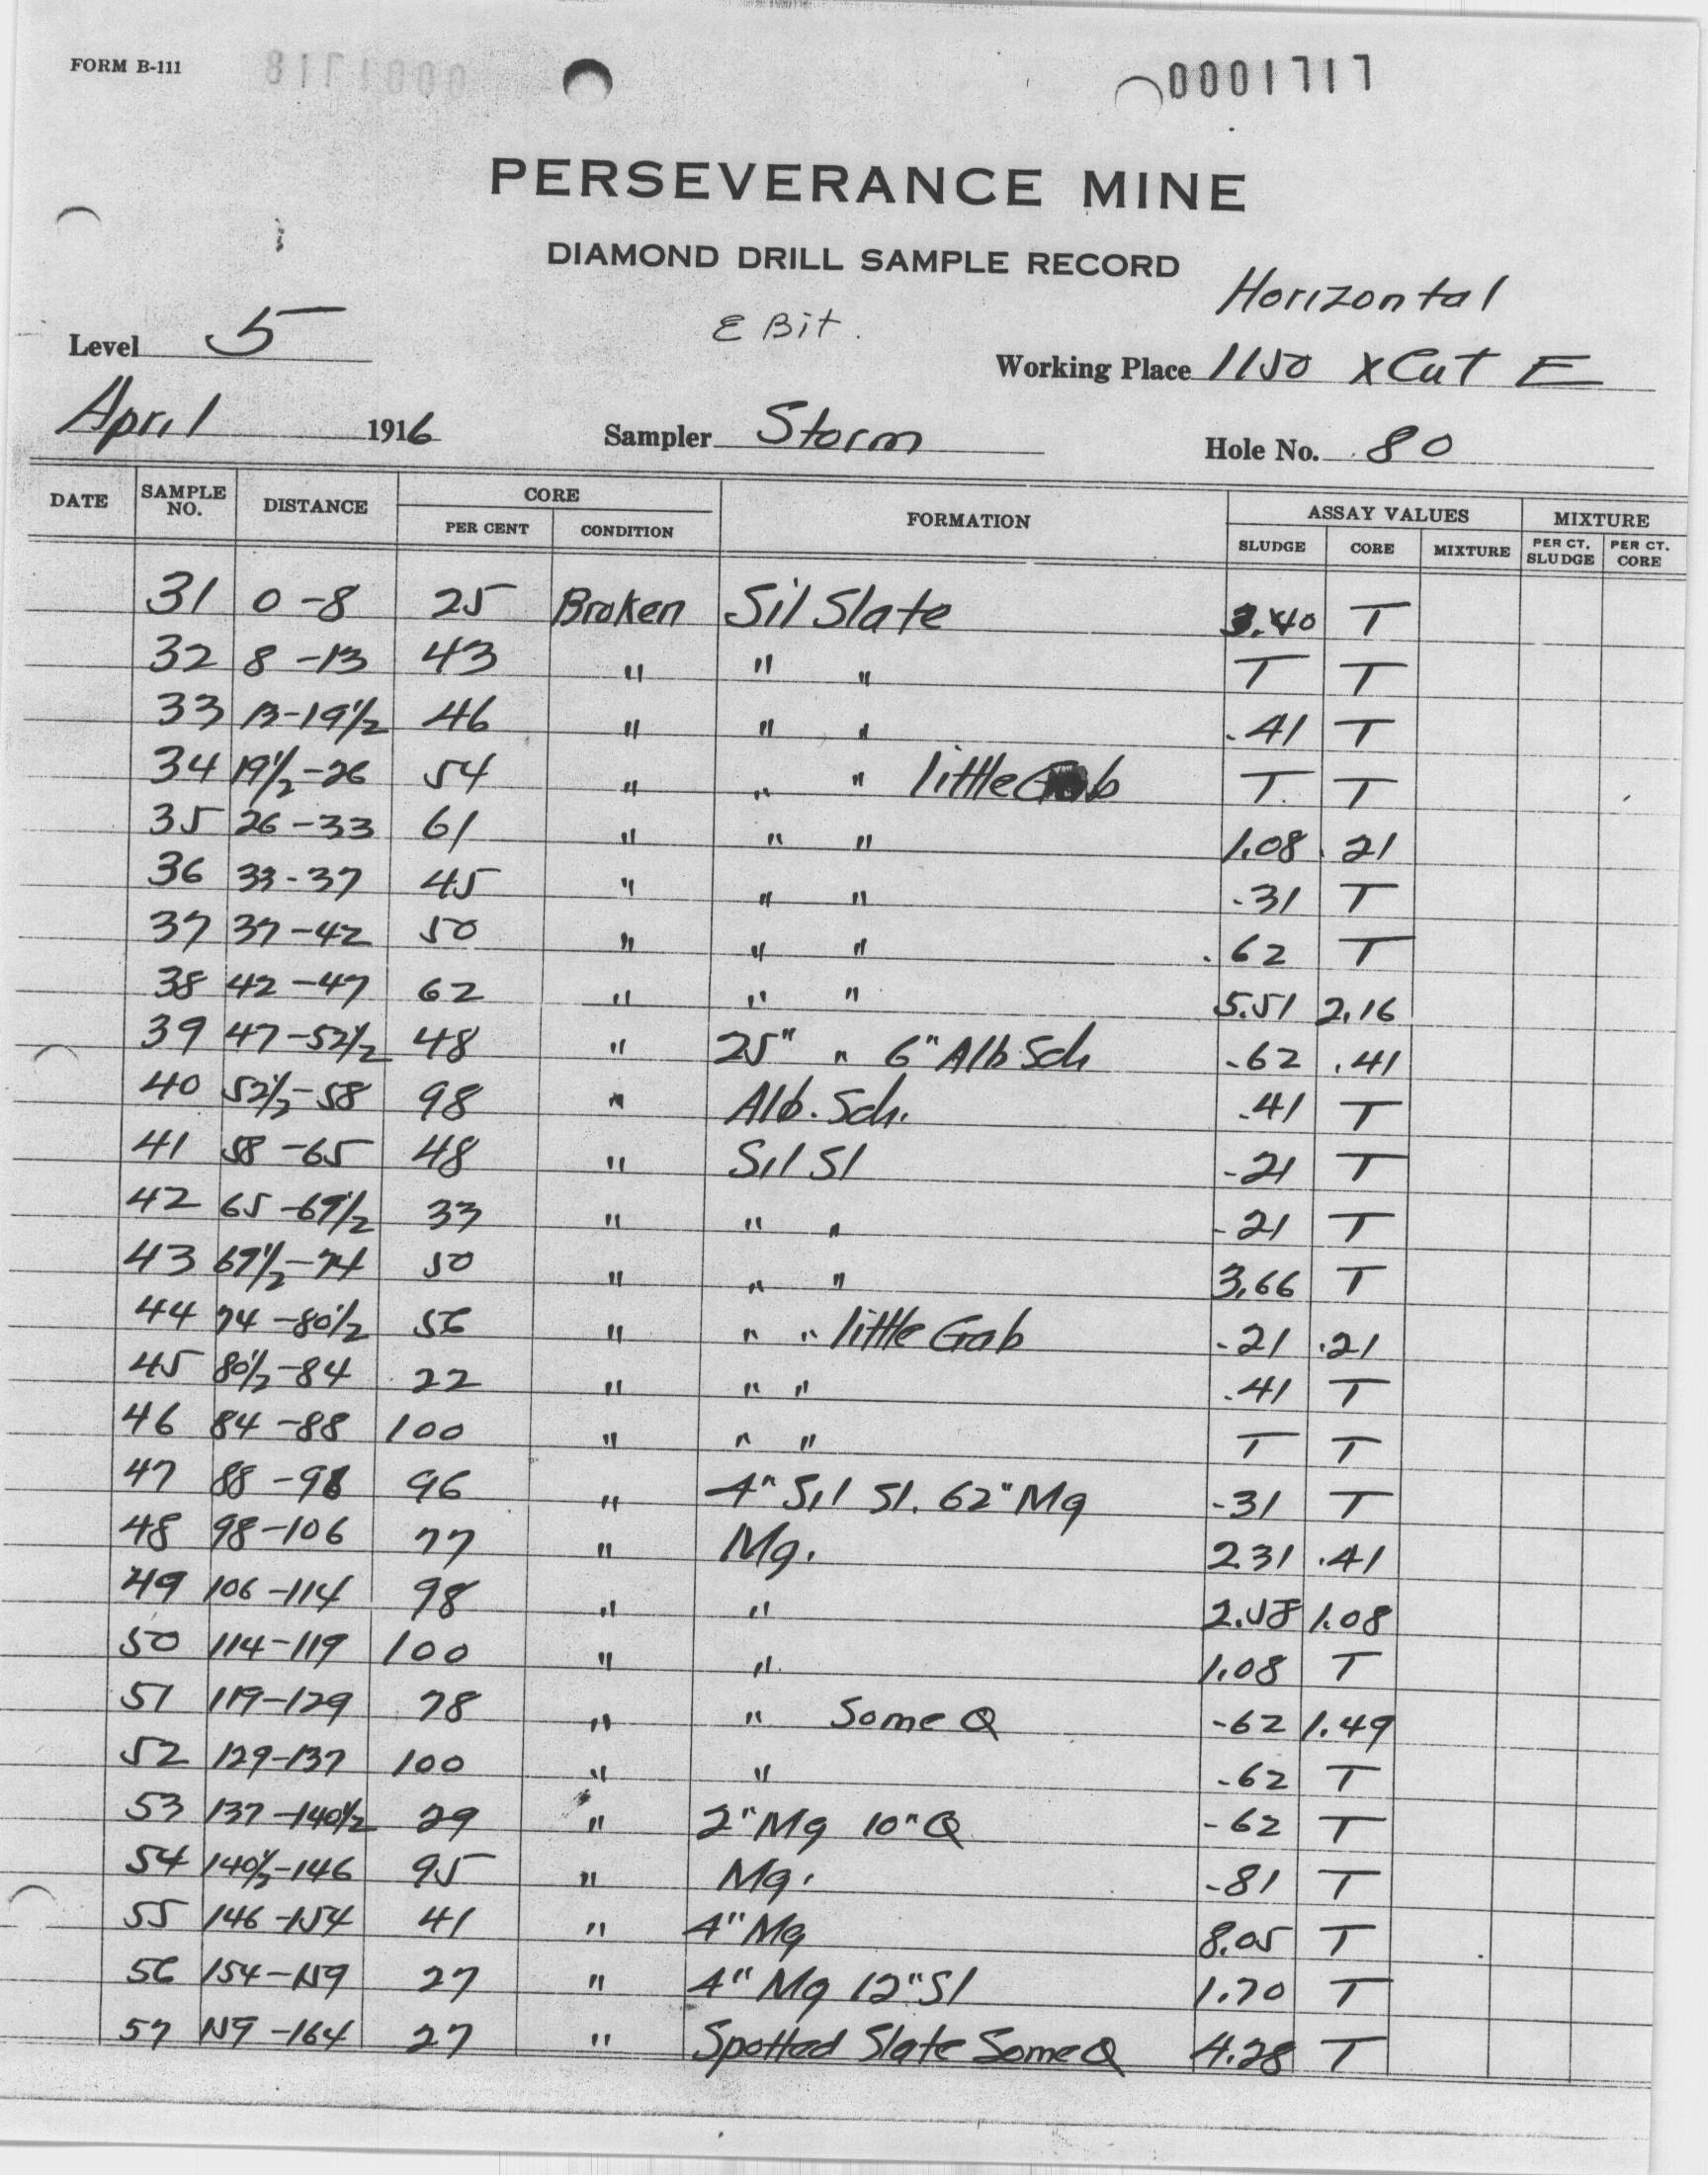 FORM B-111 0001718 0001717
PERSEVERANCE MINE
DIAMOND DRILL SAMPLE RECORD
Horizontal
Level 5 E Bit. Working Place 1150 x Cut E
April 1916 Sampler Storm Hole No. 80
DATE SAMPLE NO. DISTANCE CORE PER CENT CONDITION FORMATION ASSAY VALUES SLUDGE CORE MIXTURE MIXTURE PER CT. SLUDGE PER CT. CORE
31 0-8 25 Broken Sil Slate 3.40 T
32 8-13 43 " " " T T
33 13-19½ 46 " " " .41 T
34 19½-26 54 " " " little Gab T T
35 26-33 61 " " " 1.08 .21
36 33-37 45 " " " .31 T
37 37-42 50 " " " .62 T
38 42-47 62 " " " 5.51 2.16
39 47-52½ 48 " 25" " 6" Alb Sch .62 .41
40 52½-58 98 " Alb. Sch. .41 T
41 58-65 48 " Sil Sl .21 T
42 65-69½ 33 " " " .21 T
43 69½-74 50 " " " 3.66 T
44 74-80½ 56 " " " little Gab .21 .21
45 80½-84 22 " " " .41 T
46 84-88 100 " " " T T
47 88-98 96 " 4" Sil Sl. 62" Mg .31 T
48 98-106 77 " Mg. 2.31 .41
49 106-114 98 " " 2.58 1.08
50 114-119 100 " " 1.08 T
51 119-129 78 " " Some Q .62 1.49
52 129-137 100 " " .62 T
53 137-140½ 29 " 2" Mg 10" Q .62 T
54 140½-146 95 " Mg. .81 T
55 146-154 41 " 4" Mg 8.05 T
56 154-159 27 " 4" Mg 12" Sl 1.70 T
57 159-164 27 " Spotted Slate Some Q 4.28 T